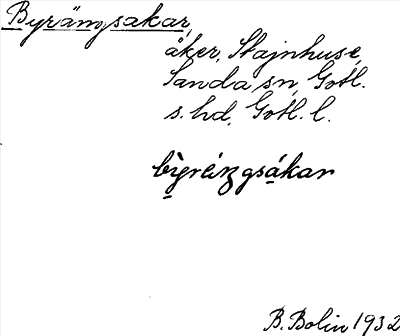 Byrämsakar,
åker, Stajnhuse,
Sanda sn, Gotl.
s. hd, Gotl. l.
B. Bolin 1932